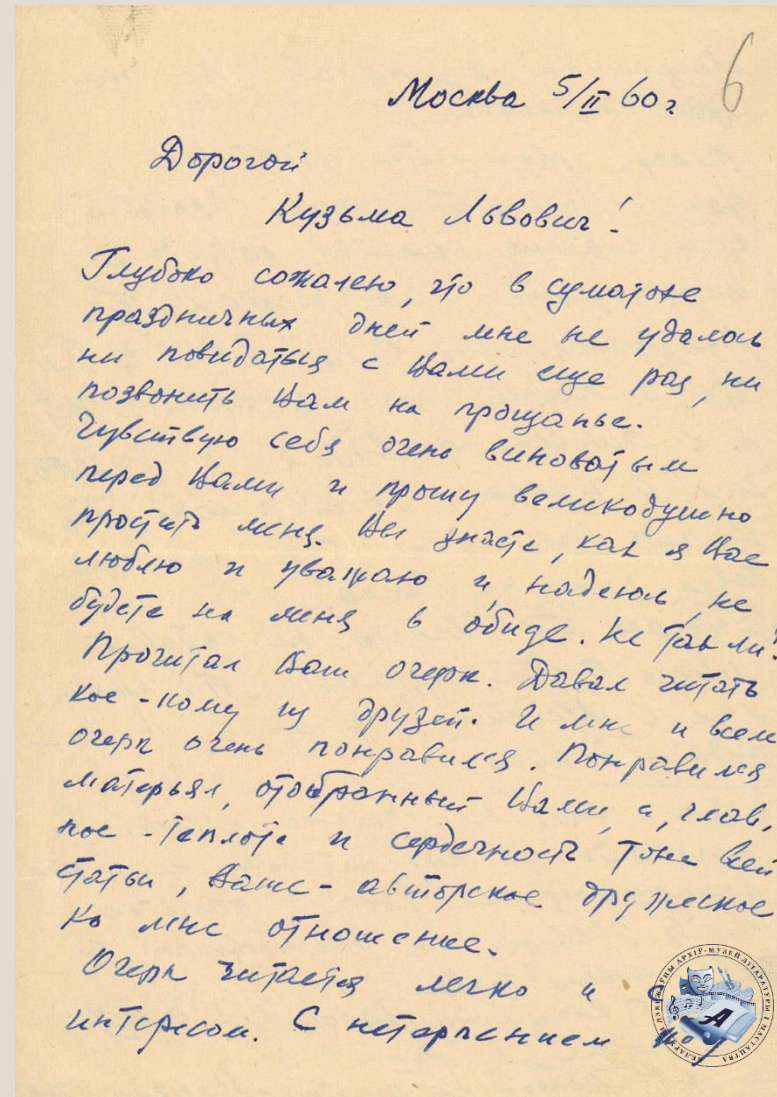 6
Москва 5/II 60 г
Дорогой
Кузьма Львович!
Глубоко сожалею, что в суматохе
праздничных дней мне не удалось
ни повидаться с Вами еще раз, ни
позвонить Вам на прощанье.
Чувствую себя очень виноватым
перед Вами и прошу великодушно
простить меня. Вы знаете, как я Вас
люблю и уважаю и, надеюсь, не
будете на меня в обиде. Не так ли?
Прочитал Ваш очерк. Давал читать
кое-кому из друзей. И мне и всем
очерк очень понравился. Понравился
матерьял, отобранный Вами, а, глав,
ное - теплота и сердечность тона всей
статьи, Ваше - авторское дружеское
ко мне отношение.
Очерк читается легко и с
интересом. С нетерпением
БЕЛАРУСКІ ДЗЯРЖАЎНЫ АРХІЎ-МУЗЕЙ ЛІТАРАТУРЫ І МАСТАЦТВА
А